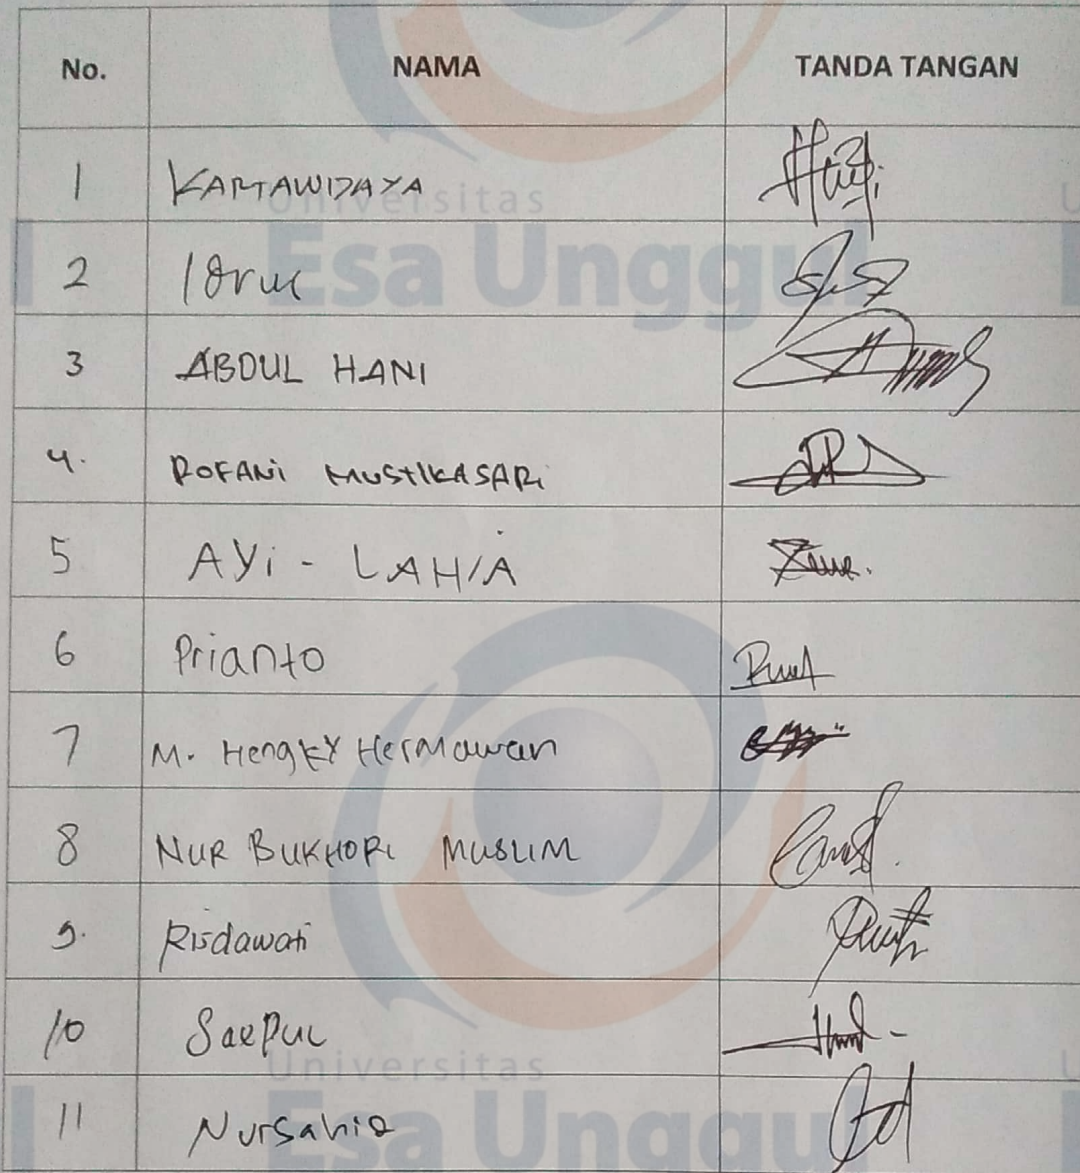 No. NAMA TANDA TANGAN
1 KARTAWIDAYA
2
3 ABDUL HANI
4. ROFANI MUSTIKASARI
5 AYi - LAHIA
6 Prianto
7 M. HengKY HerMawan
8 NUR BUKHORI MUSLIM
9. Risdawati
10 SaePul
11 Nursahia
Universitas
Esa Unggul
Universitas
Esa Unggul